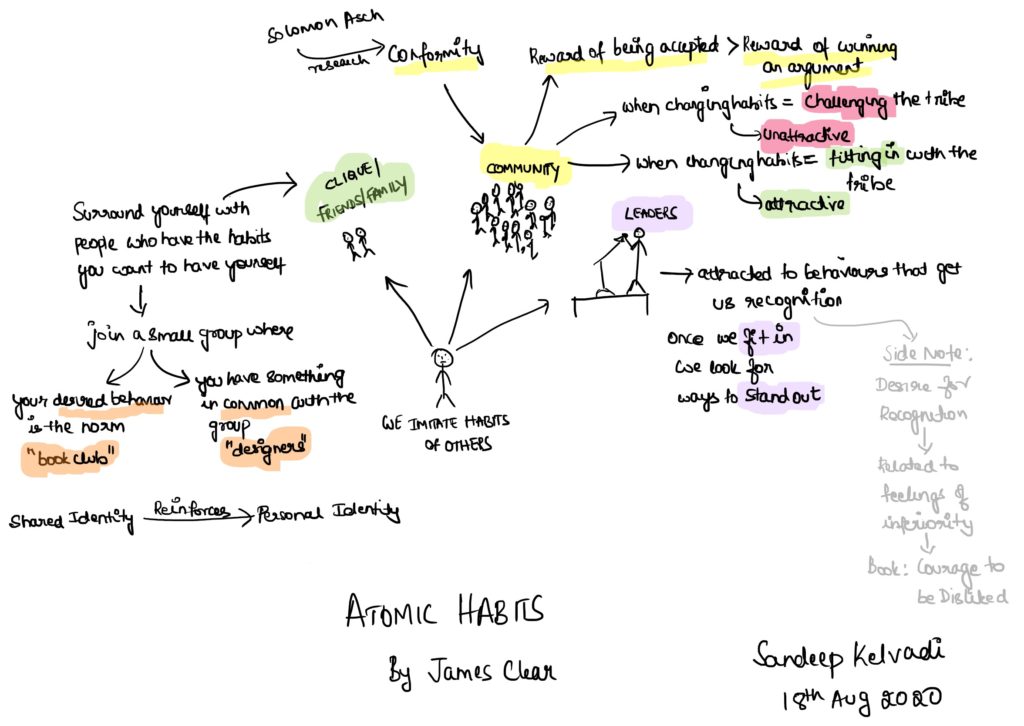 Solomon Asch
research
Conformity
Reward of being accepted > Reward of winning
an argument
when changing habits = Challenging the tribe
unattractive
COMMUNITY
when changing habits = fitting in with the
tribe
attractive
CLIQUE/
FRIENDS/FAMILY
LEADERS
Surround yourself with
people who have the habits
you want to have yourself
attracted to behaviours that get
us recognition
once we fit in
we look for
ways to stand out
join a small group where
your desired behavior
is the norm
"book club"
you have something
in common with the
group
"designers"
WE IMITATE HABITS
OF OTHERS
Side Note:
Desire for
Recognition
Related to
feelings of
inferiority
Book: Courage to
be Disliked
Shared Identity Reinforces Personal Identity
ATOMIC HABITS
By James Clear
Sandeep Kelvadi
18th Aug 2020